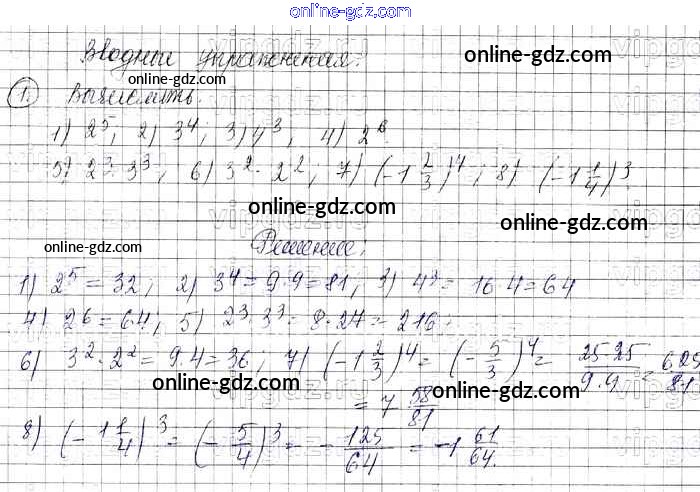 online-gdz.com
Вводные упражнения.
online-gdz.com
online-gdz.com
1. Вычислить.
1) 2^5; 2) 3^4; 3) 4^3, 4) 2^6
online-gdz.com
5) 2^3·3^3; 6) 3^2·2^2; 7) (-1 2/3)^4; 8) (-1 1/4)^3.
online-gdz.com
online-gdz.com
online-gdz.com
Решение:
1) 2^5 = 32; 2) 3^4 = 9·9 = 81, 3) 4^3 = 16·4 = 64
4) 2^6 = 64; 5) 2^3·3^3 = 8·27 = 216
online-gdz.com
6) 3^2·2^2 = 9·4 = 36; 7) (-1 2/3)^4 = (-5/3)^4 = 25·25/9·9 = 625/81
online-gdz.com
online-gdz.com
= 7 58/81
8) (-1 1/4)^3 = (-5/4)^3 = -125/64 = -1 61/64.